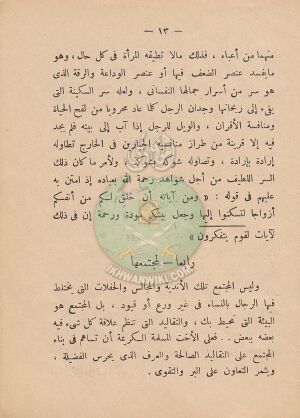 — ١٣ —
منهما من أعباء ، فذلك مالا تطيقه المرأة فى كل حال ، وهو
مايفسد عنصر الضعف فيها أو عنصر الوداعة والرقة الذى
هو سر من أسرار جمالها النفسانى ، ولعله سر السكينة التى
يفىء إلى ريحانها وجدان الرجل كلما عاد محرورا من لفح الحياة
ومنافسة الأقران ، والويل للرجل إذا آب إلى بيته فلم يجد
فيه إلا قرينة من طراز منافسيه الجبارين فى الخارج تطاوله
إرادة بإرادة ، وتصاوله شوكة بشوكة ، ولأمر ما كان ذلك
السر اللطيف من أجل شواهد رحمة الله بعباده إذ امتن به
عليهم فى قوله : « ومن آياته أن خلق لكم من أنفسكم
أزواجا لتسكنوا إليها وجعل بينكم مودة ورحمة إن فى ذلك
لآيات لقوم يتفكرون »
رابعا — لمجتمعها
وليس المجتمع تلك الأندية والمجالس والحفلات التى يختلط
فيها الرجال بالنساء فى غير ورع أو قيود ، بل المجتمع هو
البيئة التى تحيط بك ، والتقاليد التى تنظم علاقة كل شىء فيه
بعضه ببعض .. فعلى الأخت المسلمة السكريمة أن تساهم فى بناء
المجتمع على التقاليد الصالحة والعرف الذى يحرس الفضيلة ،
ويثمر التعاون على البر والتقوى .
IKHWANWIKI.COM